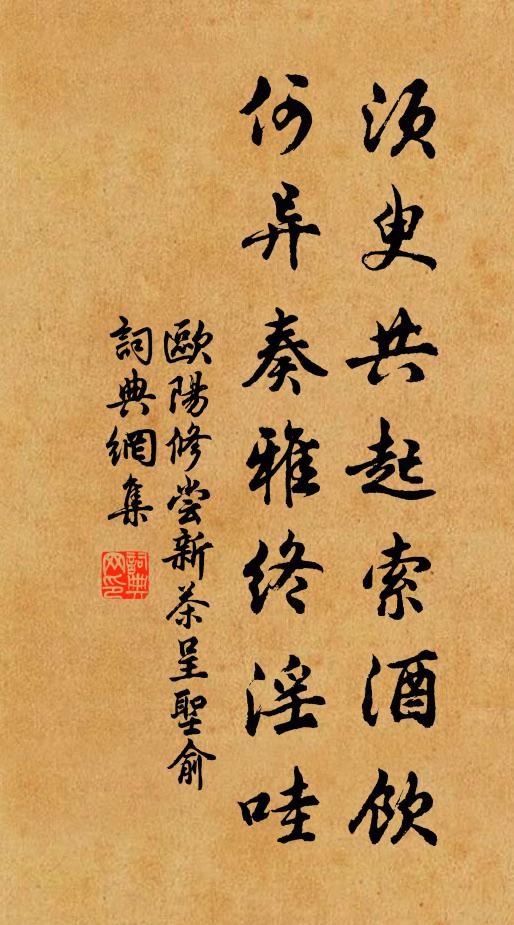 须叟共起索酒饮
何异奏雅终淫哇
歐陽修尝新茶呈聖俞
詞典網集
詞典网印